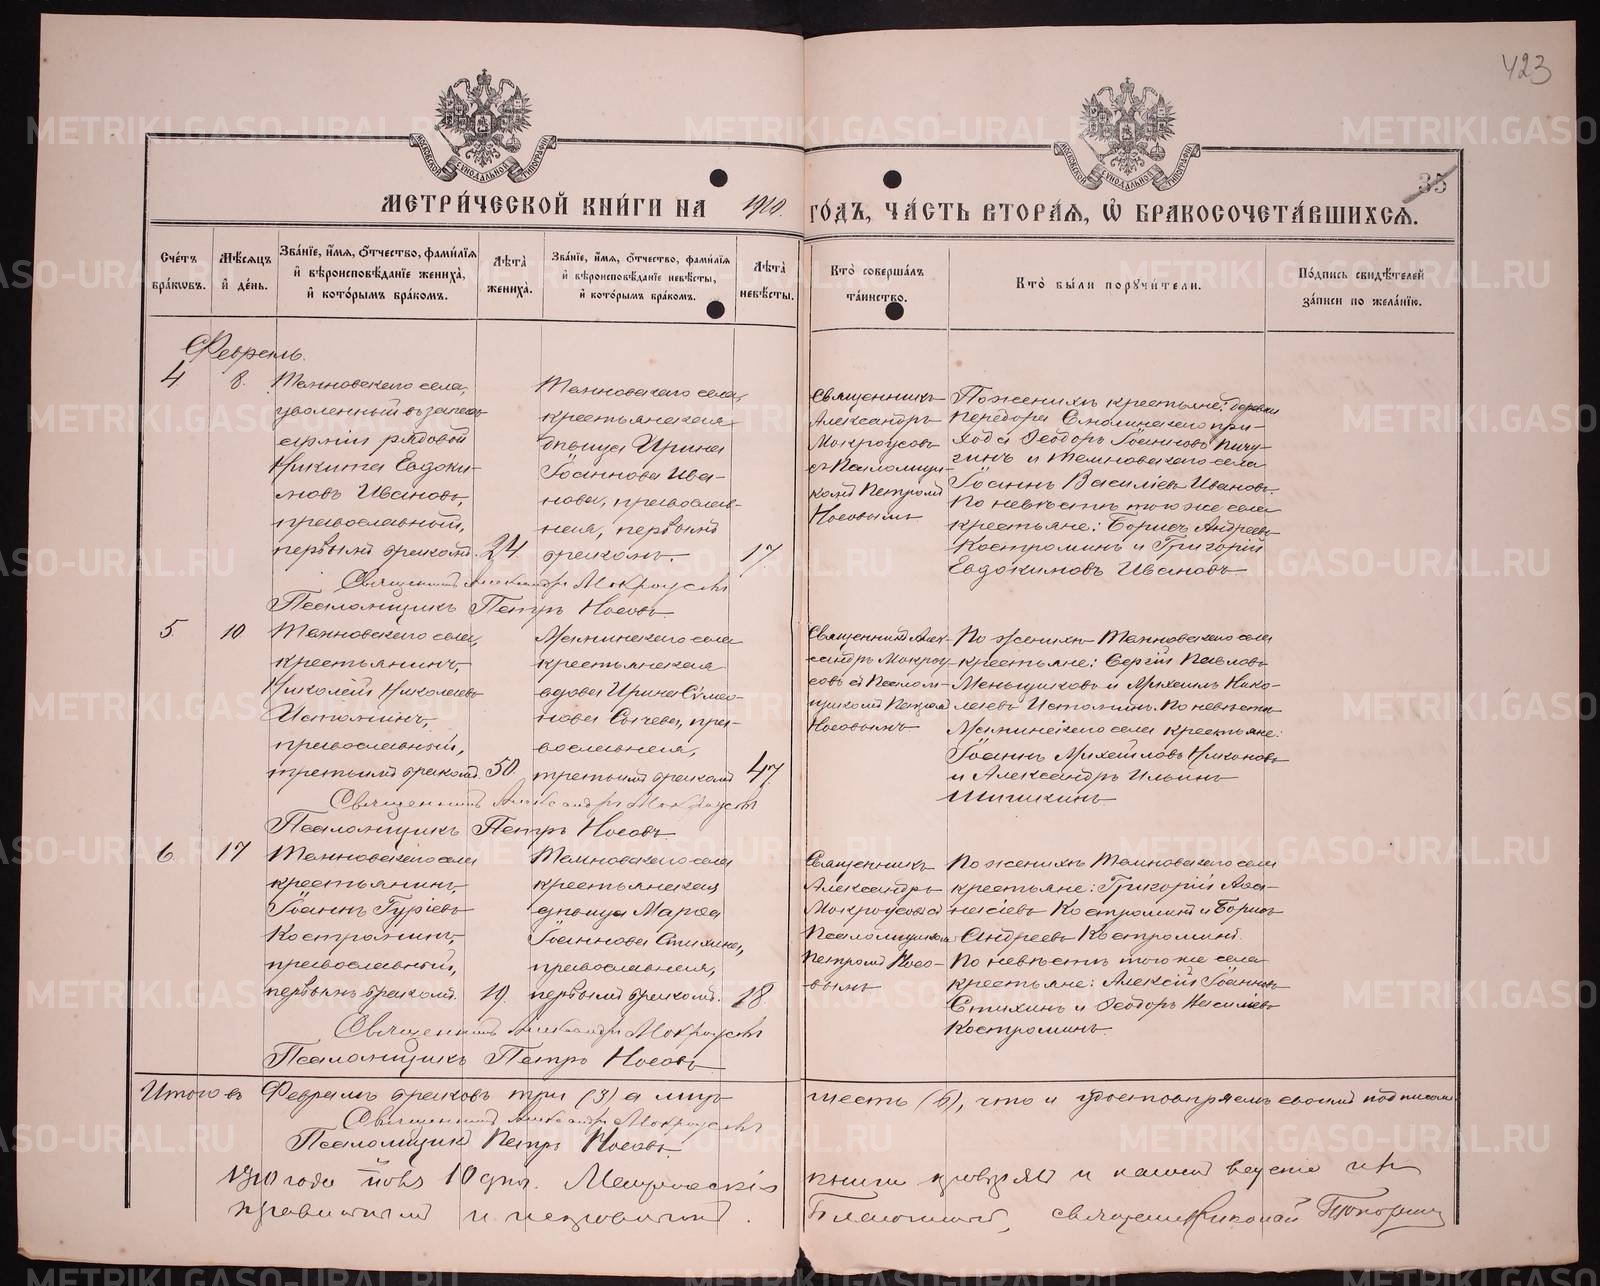 423
МОСКОВСКОЙ СѴНОДАЛЬНОЙ ТИПОГРАФІИ
МОСКОВСКОЙ СѴНОДАЛЬНОЙ ТИПОГРАФІИ
35
МЕТРИ́ЧЕСКОЙ КНИ́ГИ НА 1910. ГО́ДЪ, ЧА́СТЬ ВТОРА́Я, Ѡ БРАКОСОЧЕТА́ВШИХСЯ.
Сче́тъ бра́кѡвъ.
Мѣ́сяцъ и҆ де́нь.
Зва́нїе, и҆́мя, ѻ҆́тчество, фами́лїя и҆ вѣроисповѣ́данїе жениха̀, и҆ кото́рымъ бра́комъ.
Лѣ́та̀ жениха̀.
Зва́нїе, и҆́мя, ѻ҆́тчество, фами́лїя и҆ вѣроисповѣ́данїе невѣ́сты, и҆ кото́рымъ бра́комъ.
Лѣ́та̀ невѣ́сты.
Кто̀ соверша́лъ та́инство.
Кто̀ бы́ли порꙋчи́тели.
По́дпись свидѣ́телей за́писи по жела́нїю.
Февраль.
4
8.
Темновскаго села,
уволенный въ запасъ
арміи рядовой
Никита Евдоки-
мовъ Ивановъ,
православный,
первымъ бракомъ.
24
Темновскаго села,
крестьянская
дѣвица Ирина
Іоаннова Ива-
нова, православ-
ная, первымъ
бракомъ.
17
Священникъ
Александръ
Мокроусовъ
съ Псаломщи-
комъ Петромъ
Носовымъ
По женихѣ крестьяне: деревни
Смолинскаго при-
хода Ѳеодоръ Іоанновъ Пичу-
гинъ и Темновскаго села
Іоаннъ Василіевъ Ивановъ.
По невѣстѣ того же села
крестьяне: Борисъ Андреевъ
Костроминъ и Григорій
Евдокимовъ Ивановъ
Священникъ Александръ Мокроусовъ
Псаломщикъ Петръ Носовъ.
5.
10.
Темновскаго села,
крестьянинъ,
Николай Николаевъ
Истоминъ,
православный,
третьимъ бракомъ.
50.
села
крестьянская
вдова Ирина Симео-
нова Сычева, пра-
вославная,
третьимъ бракомъ
47
Священникъ Алек-
сандръ Мокроу-
совъ съ Псалом-
щикомъ Петромъ
Носовымъ
По женихѣ Темновскаго села
крестьяне: Сергій Павловъ
Меньщиковъ и Михаилъ Нико-
лаевъ Истоминъ. По невѣстѣ
села крестьяне:
Іоаннъ Михайловъ Никоновъ
и Александръ Ильинъ
Шишкинъ
Священникъ Александръ Мокроусовъ
Псаломщикъ Петръ Носовъ
6.
17
Темновскаго села
крестьянинъ,
Іоаннъ Гуріевъ
Костроминъ,
православный,
первымъ бракомъ.
19.
Темновскаго села
крестьянская
дѣвица Марѳа
Іоаннова Стихина,
православная,
первымъ бракомъ.
18.
Священникъ
Александръ
Мокроусовъ съ
Псаломщикомъ
Петромъ Носо-
вымъ
По женихѣ Темновскаго села
крестьяне: Григорій Аѳа-
насіевъ Костроминъ и Борисъ
Андреевъ Костроминъ.
По невѣстѣ того же села
крестьяне: Алексій Іоанновъ
Стихинъ и Ѳеодоръ Василіевъ
Костроминъ.
Священникъ Александръ Мокроусовъ
Псаломщикъ Петръ Носовъ
Итого въ Февралѣ браковъ три (3) а лицъ шесть (6), что и удостовѣряемъ своимъ подписомъ.
Священникъ Александръ Мокроусовъ
Псаломщикъ Петръ Носовъ.
1910 года 10 дня. Метрическія книги повѣрялъ и нашелъ веденіе ихъ
правильнымъ и исправнымъ. Благочинный, священникъ Николай Топорковъ
METRIKI.GASO-URAL.RU